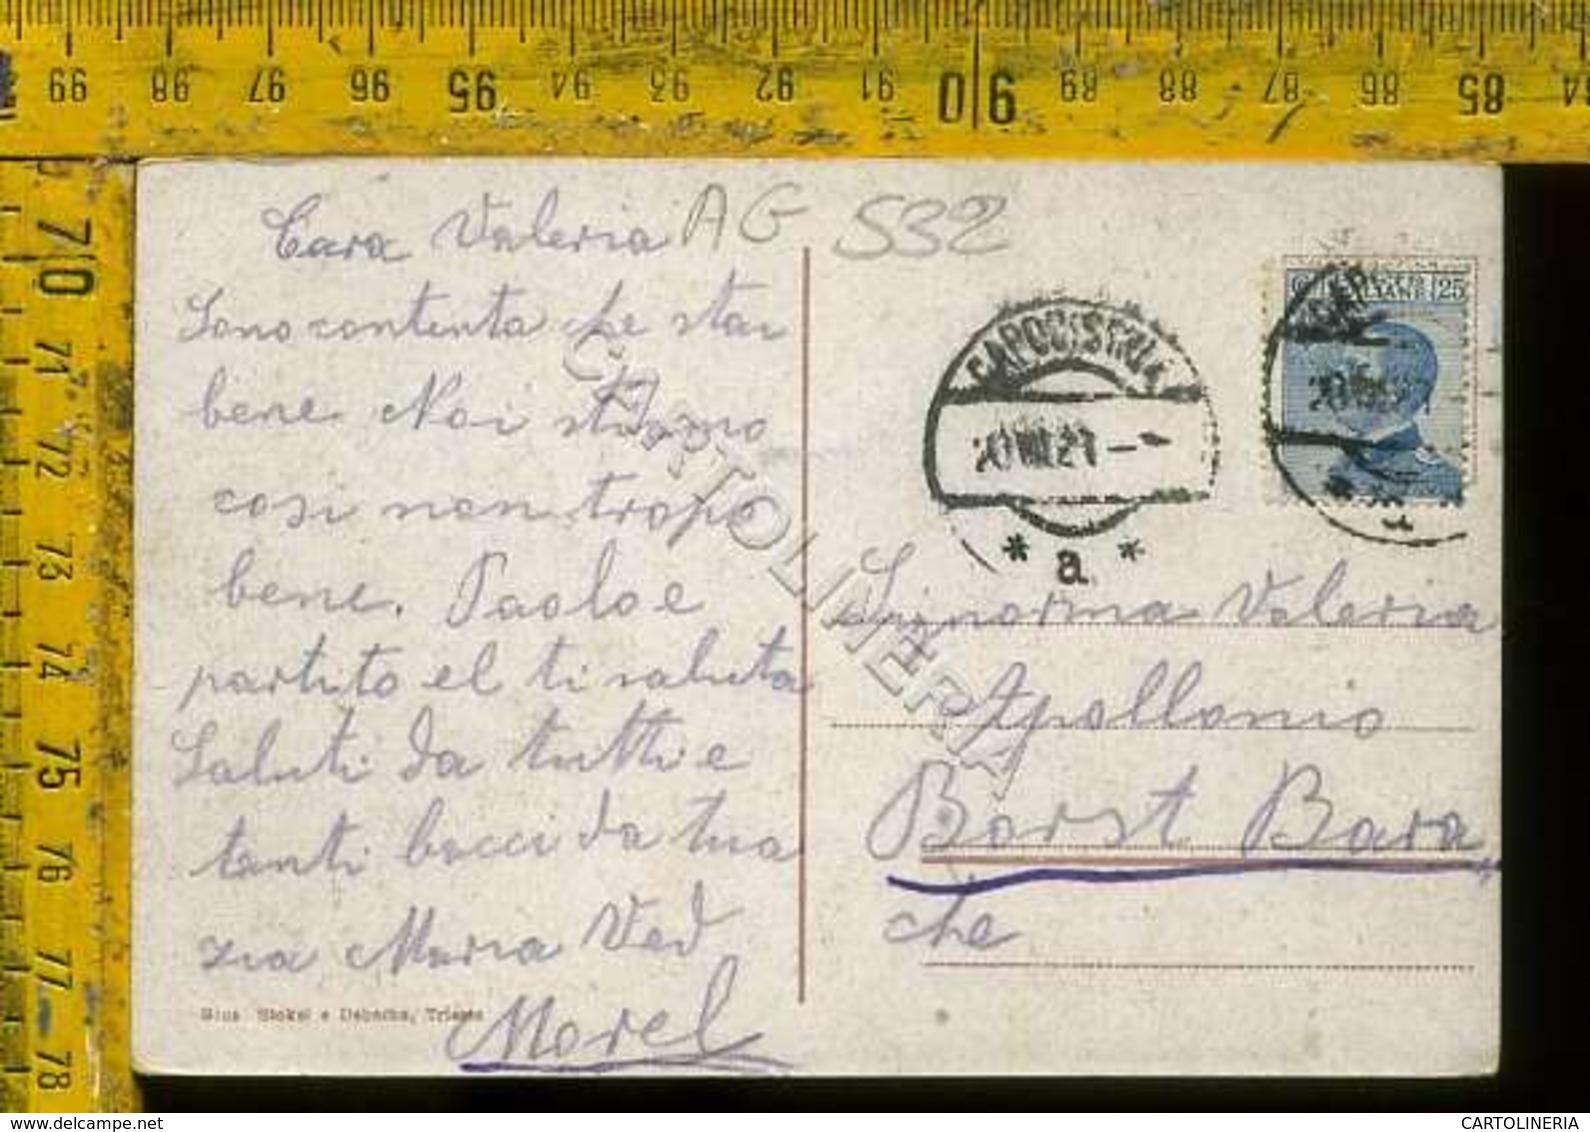 99 98 97 96 95 94 93 92 91 90 89 88 87 86 85 84
70 71 72 73 74 75 76 77 78
AG 532
Cara Valeria
Sono contenta che stai
bene Noi stiamo
cosi non tropo
bene. Paolo e
partito el ti saluta
Saluti da tutti e
tanti bacci da tua
zia Maria Ved
Morel
CAPODISTRIA
20 VIII 21
* a *
25
Signorina Valeria
Apollonio
Borst Bara
che
Stokel e Debarba, Trieste
CARTOLINERIA
www.delcampe.net
CARTOLINERIA